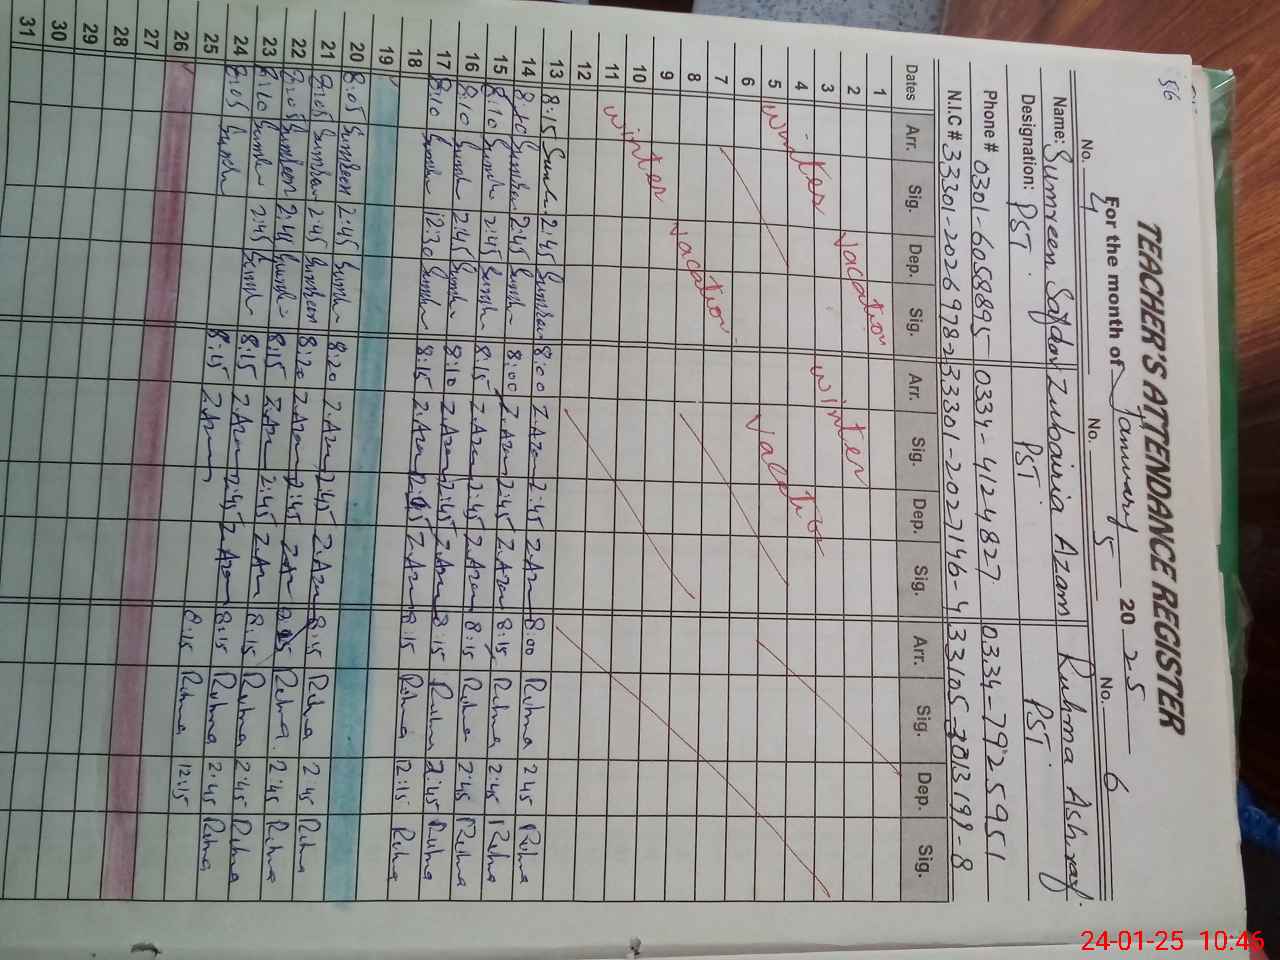 56
TEACHER'S ATTENDANCE REGISTER
For the month of January 2025
No. 4 No. 5 No. 6
Name: Sumreen Safdar Zubairia Azam Ruhma Ashraf.
Designation: PST. PST PST.
Phone # 0301-6058895 0334-4124827 0334-7925951
N.I.C # 33301-2026978-2 33301-2027146-4 33105-3013199-8
Dates Arr. Sig. Dep. Sig. Arr. Sig. Dep. Sig. Arr. Sig. Dep. Sig.
1
2 Vacation
3 winter winter
4 Vacation
5
6
7
8
9
10 Vacation
11 winter
12
13
14 8:15 Sumreen 2:45 Sumreen 8:00 Z.Azam 2:45 Z.Azam 8:00 Ruhma 2:45 Ruhma
15 8:10 Sumreen 2:45 Sumreen 8:00 Z.Azam 2:45 Z.Azam 8:15 Ruhma 2:45 Ruhma
16 8:10 Sumreen 2:45 Sumreen 8:15 Z.Azam 2:45 Z.Azam 8:15 Ruhma 2:45 Ruhma
17 8:10 Sumreen 2:45 Sumreen 8:10 Z.Azam 2:45 Z.Azam 8:15 Ruhma 2:45 Ruhma
18 8:10 Sumreen 12:30 Sumreen 8:15 Z.Azam Z.Azam 8:15 Ruhma 12:15 Ruhma
19
20 8:05 Sumreen 2:45 Sumreen 8:20 Z.Azam 2:45 Z.Azam 8:15 Ruhma 2:45 Ruhma
21 8:05 Sumreen 2:45 Sumreen 8:20 Z.Azam 2:45 Z.Azam Ruhma 2:45 Ruhma
22 8:05 Sumreen 2:45 Sumreen 8:15 Z.Azam 2:45 Z.Azam 8:15 Ruhma 2:45 Ruhma
23 8:10 Sumreen 2:45 Sumreen 8:15 Z.Azam 2:45 Z.Azam 8:15 Ruhma 2:45 Ruhma
24 8:05 Sumreen 8:15 Z.Azam 8:15 Ruhma 12:15
25
26
27
28
29
30
31
24-01-25 10:46